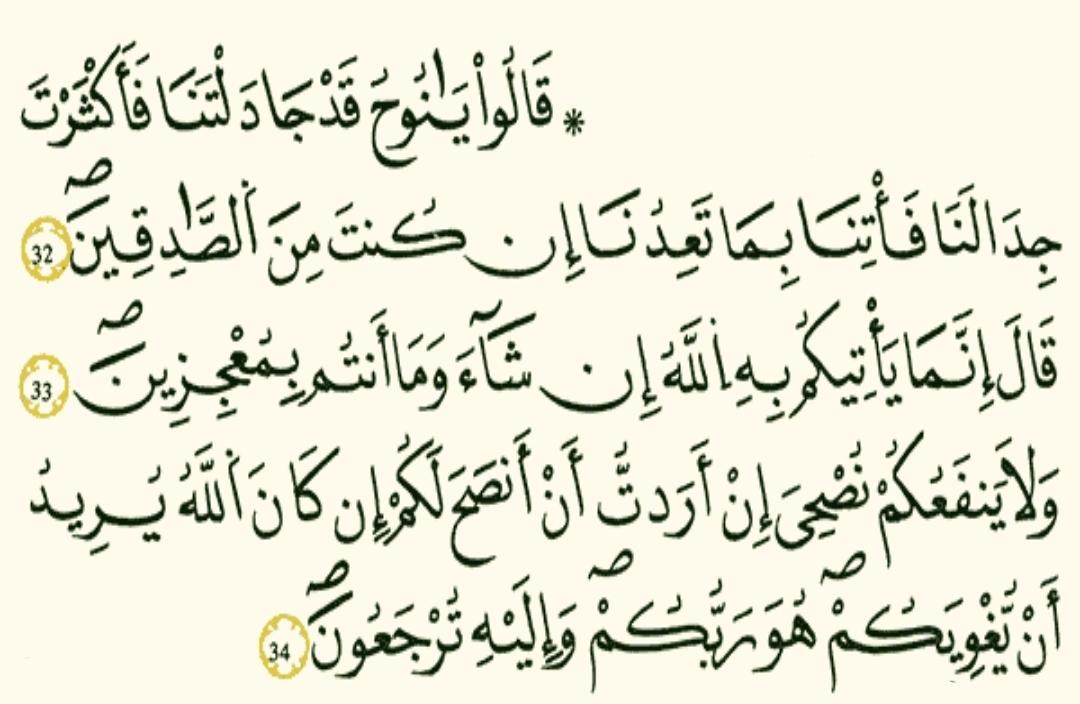 * قَالُواْ يَٰنُوحُ قَدْ جَادَلْتَنَا فَأَكْثَرْتَ
جِدَالَنَا فَأْتِنَا بِمَا تَعِدُنَا إِن كُنتَ مِنَ اَ۬لصَّٰدِقِينَۖ 32
قَالَ إِنَّمَا يَأْتِيكُم بِهِ اِ۬للَّهُ إِن شَآءَ وَمَا أَنتُم بِمُعْجِزِينَۖ 33
وَلَا يَنفَعُكُمْ نُصْحِى إِنْ أَرَدتُّ أَنْ أَنصَحَ لَكُمْ إِن كَانَ اَ۬للَّهُ يُرِيدُ
أَنْ يُّغْوِيَكُمْۖ هُوَ رَبُّكُمْۖ وَإِلَيْهِ تُرْجَعُونَۖ 34